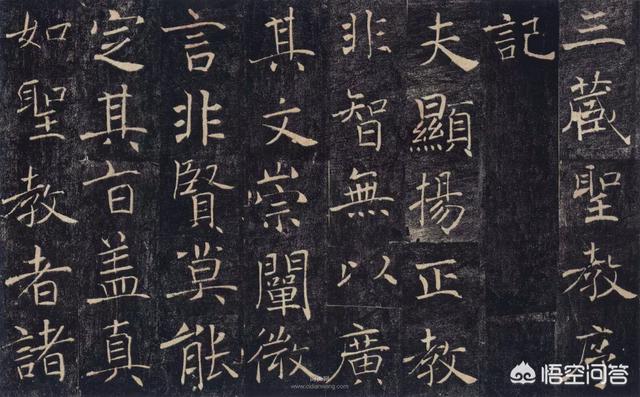 三藏聖教序
記
夫顯揚正教
非智無以廣
其文崇闡微
言非賢莫能
定其旨盖真
如聖教者諸
www.cidianwang.com
悟空问答